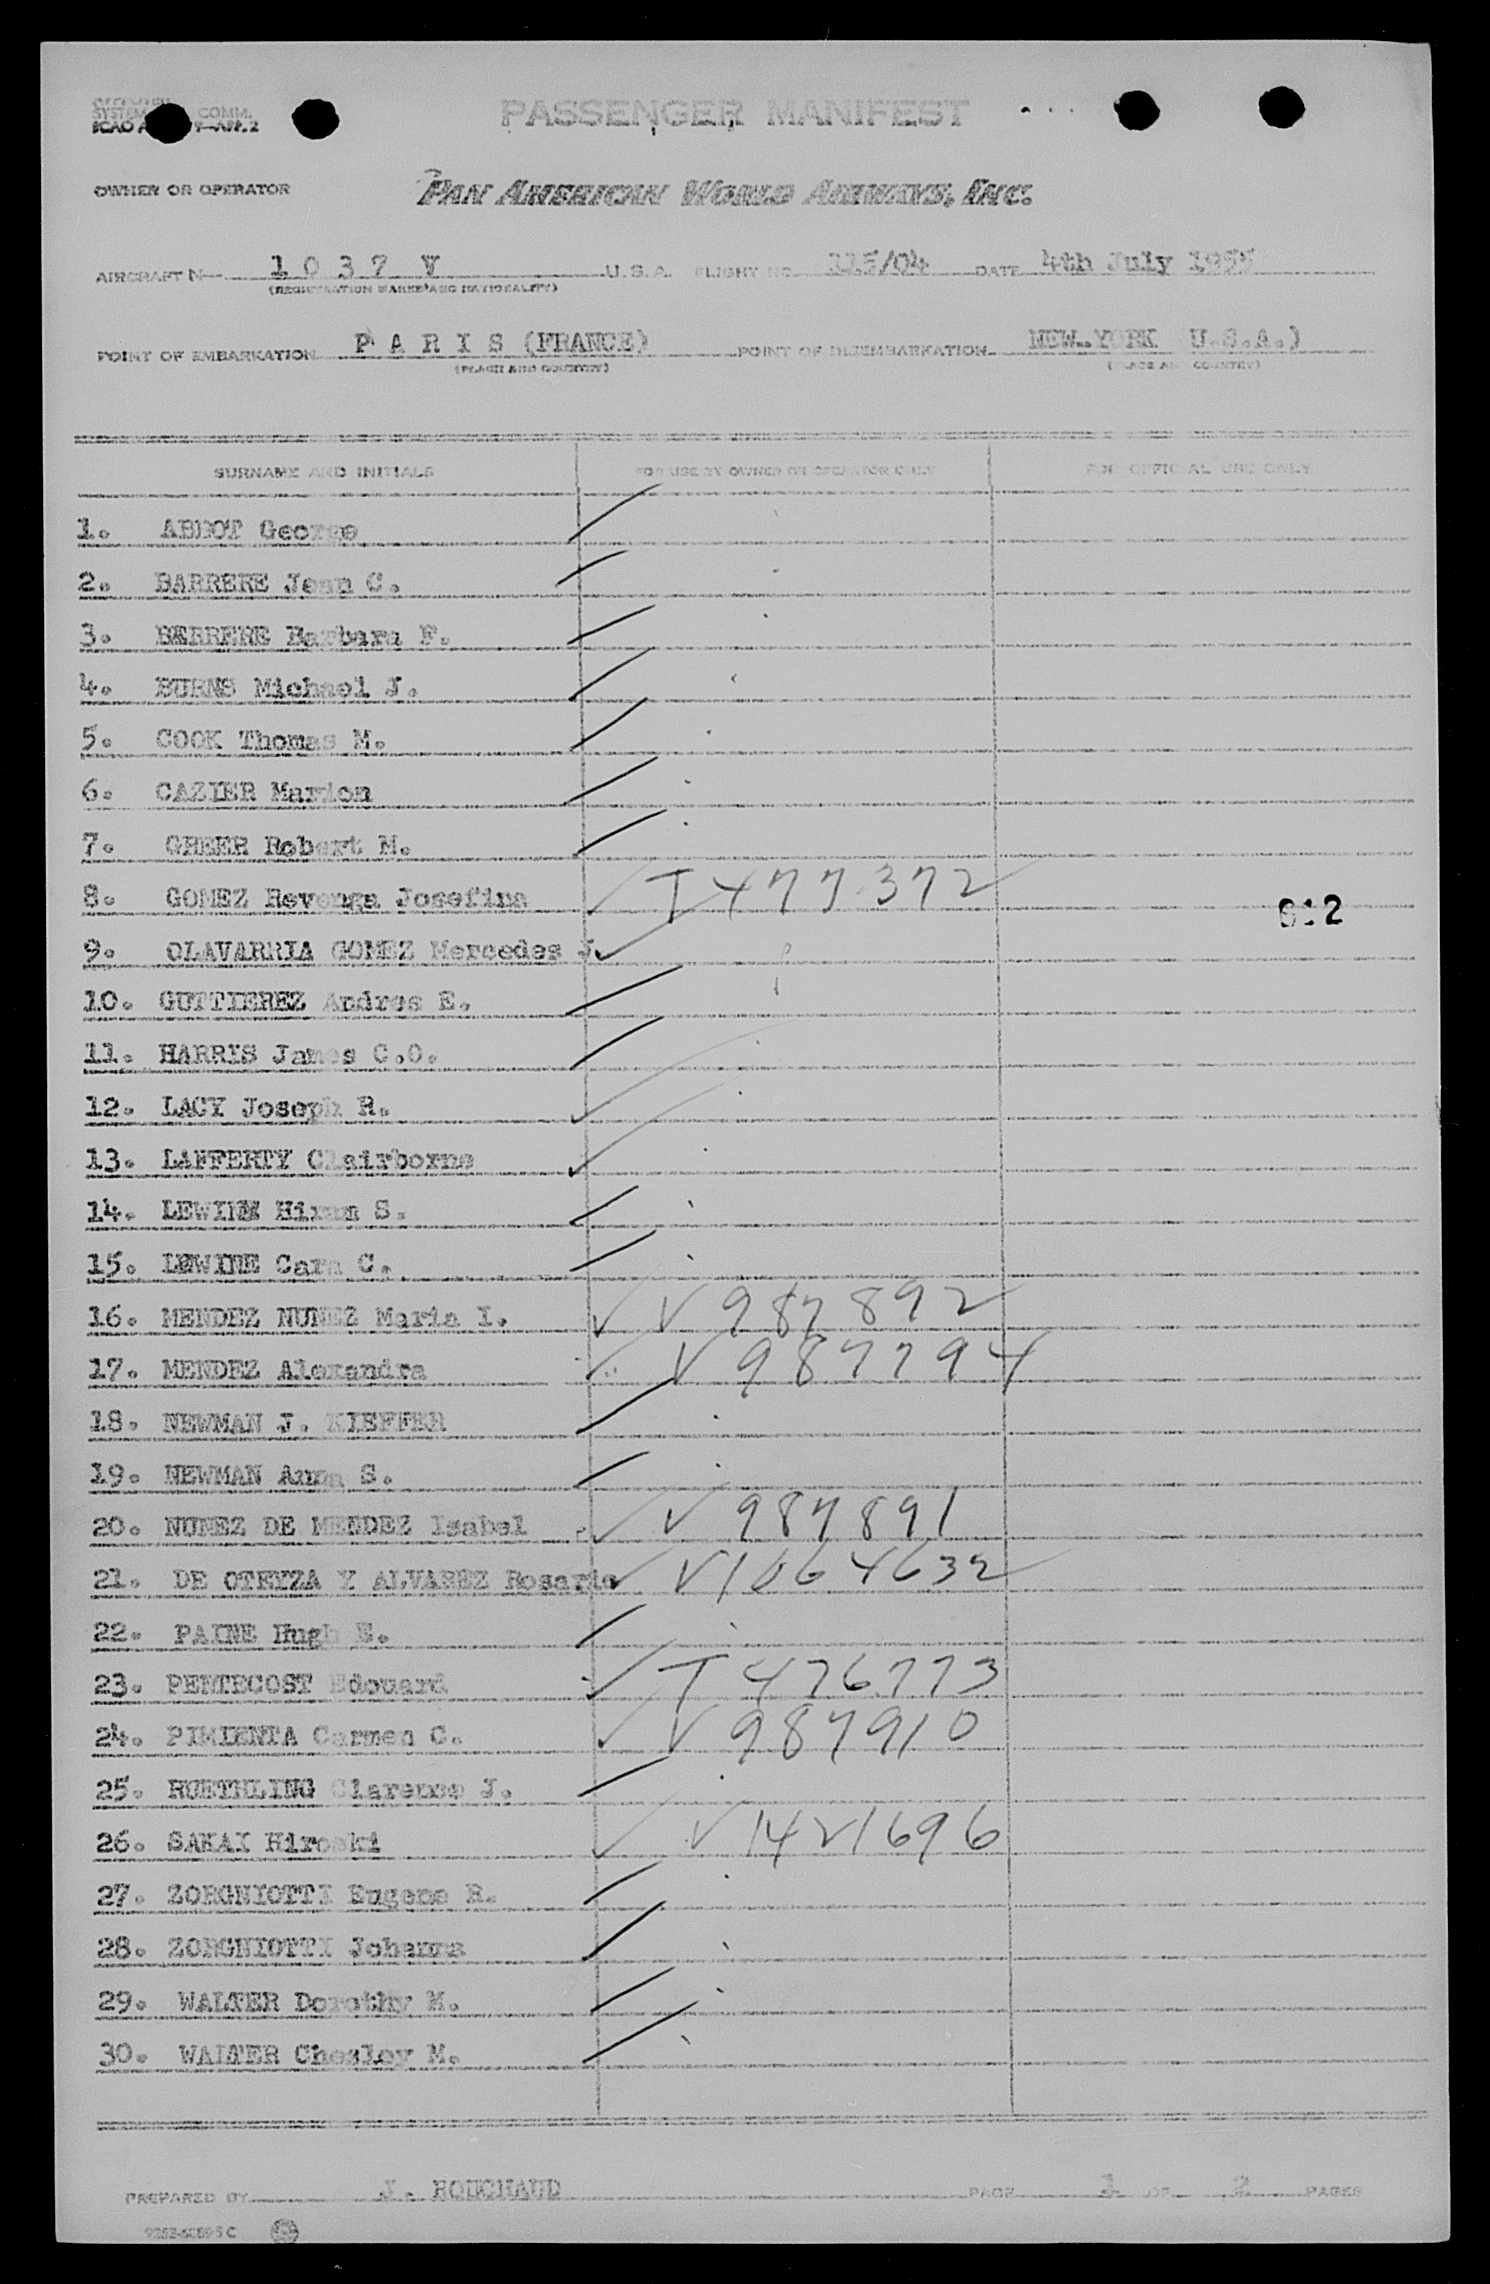 PASSENGER MANIFEST
SYSTEM COMM.
ICAO APP. 2
OWNER OR OPERATOR PAN AMERICAN WORLD AIRWAYS, INC.
AIRCRAFT N 1037 V U.S.A. FLIGHT NO. 115/04 DATE 4th July 1955
(REGISTRATION MARKS AND NATIONALITY)
POINT OF EMBARKATION P A R I S (FRANCE) POINT OF DISEMBARKATION NEW.YORK U.S.A.)
(PLACE AND COUNTRY) (PLACE AND COUNTRY)
SURNAME AND INITIALS FOR USE BY OWNER OR OPERATOR ONLY FOR OFFICIAL USE ONLY
1. ABBOT George
2. BARRERE Jean C.
3. BARRERE Barbara F.
4. BURNS Michael J.
5. COOK Thomas M.
6. CAZIER Marion
7. GREER Robert M.
8. GOMEZ Revenga Josefina T 477372
912
9. OLAVARRIA GOMEZ Mercedes J.
10. GUTTIEREZ Andres E.
11. HARRIS James C.O.
12. LACY Joseph R.
13. LAFFERTY Clairborne
14. LEWINE Hiram S.
15. LEWINE Cara C.
16. MENDEZ NUNEZ Maria I. V 987892
17. MENDEZ Alexandra V 987794
18. NEWMAN J. KIEFFER
19. NEWMAN Anna S.
20. NUNEZ DE MENDEZ Isabel V 987891
21. DE OTEYZA Y ALVAREZ Rosario V1064632
22. PAINE Hugh E.
23. PENTECOST Edouard T 476773
24. PIMIENTA Carmen C. V 987910
25. RUETHLING Clarence J.
26. SAKAI Hiroski V 1421696
27. ZORGNIOTTI Eugene R.
28. ZORGNIOTTI Johanna
29. WALTER Dorothy M.
30. WALTER Chesley M.
PREPARED BY J. ROUCHAUD PAGE 1 OF 2 PAGES